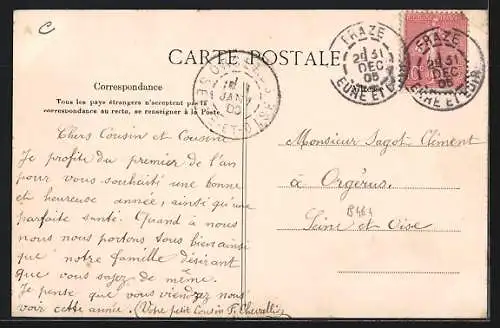 C
CARTE POSTALE
FRAZE
2E 31
DEC
05
EURE ET LOIR
FRAZE
2E 31
DEC
05
EURE ET LOIR
JANV
Correspondance
Tous les pays étrangers n'acceptent pas la
correspondance au recto, se renseigner à la Poste.
Chers Cousin et Cousine
Je profite du premier de l'an
pour vous souhaité une bonne
et heureuse année, ainsi qu'une
parfaite santé. Quand à nous
nous nous portons tous bien ainsi
que notre famille désirant
que vous soyez de même.
Je pense que vous viendrez nous
voir cette année. (Votre petit Cousin P. Chevallier
Monsieur Sagot-Clément
à Orgérus
Seine et Oise
B461